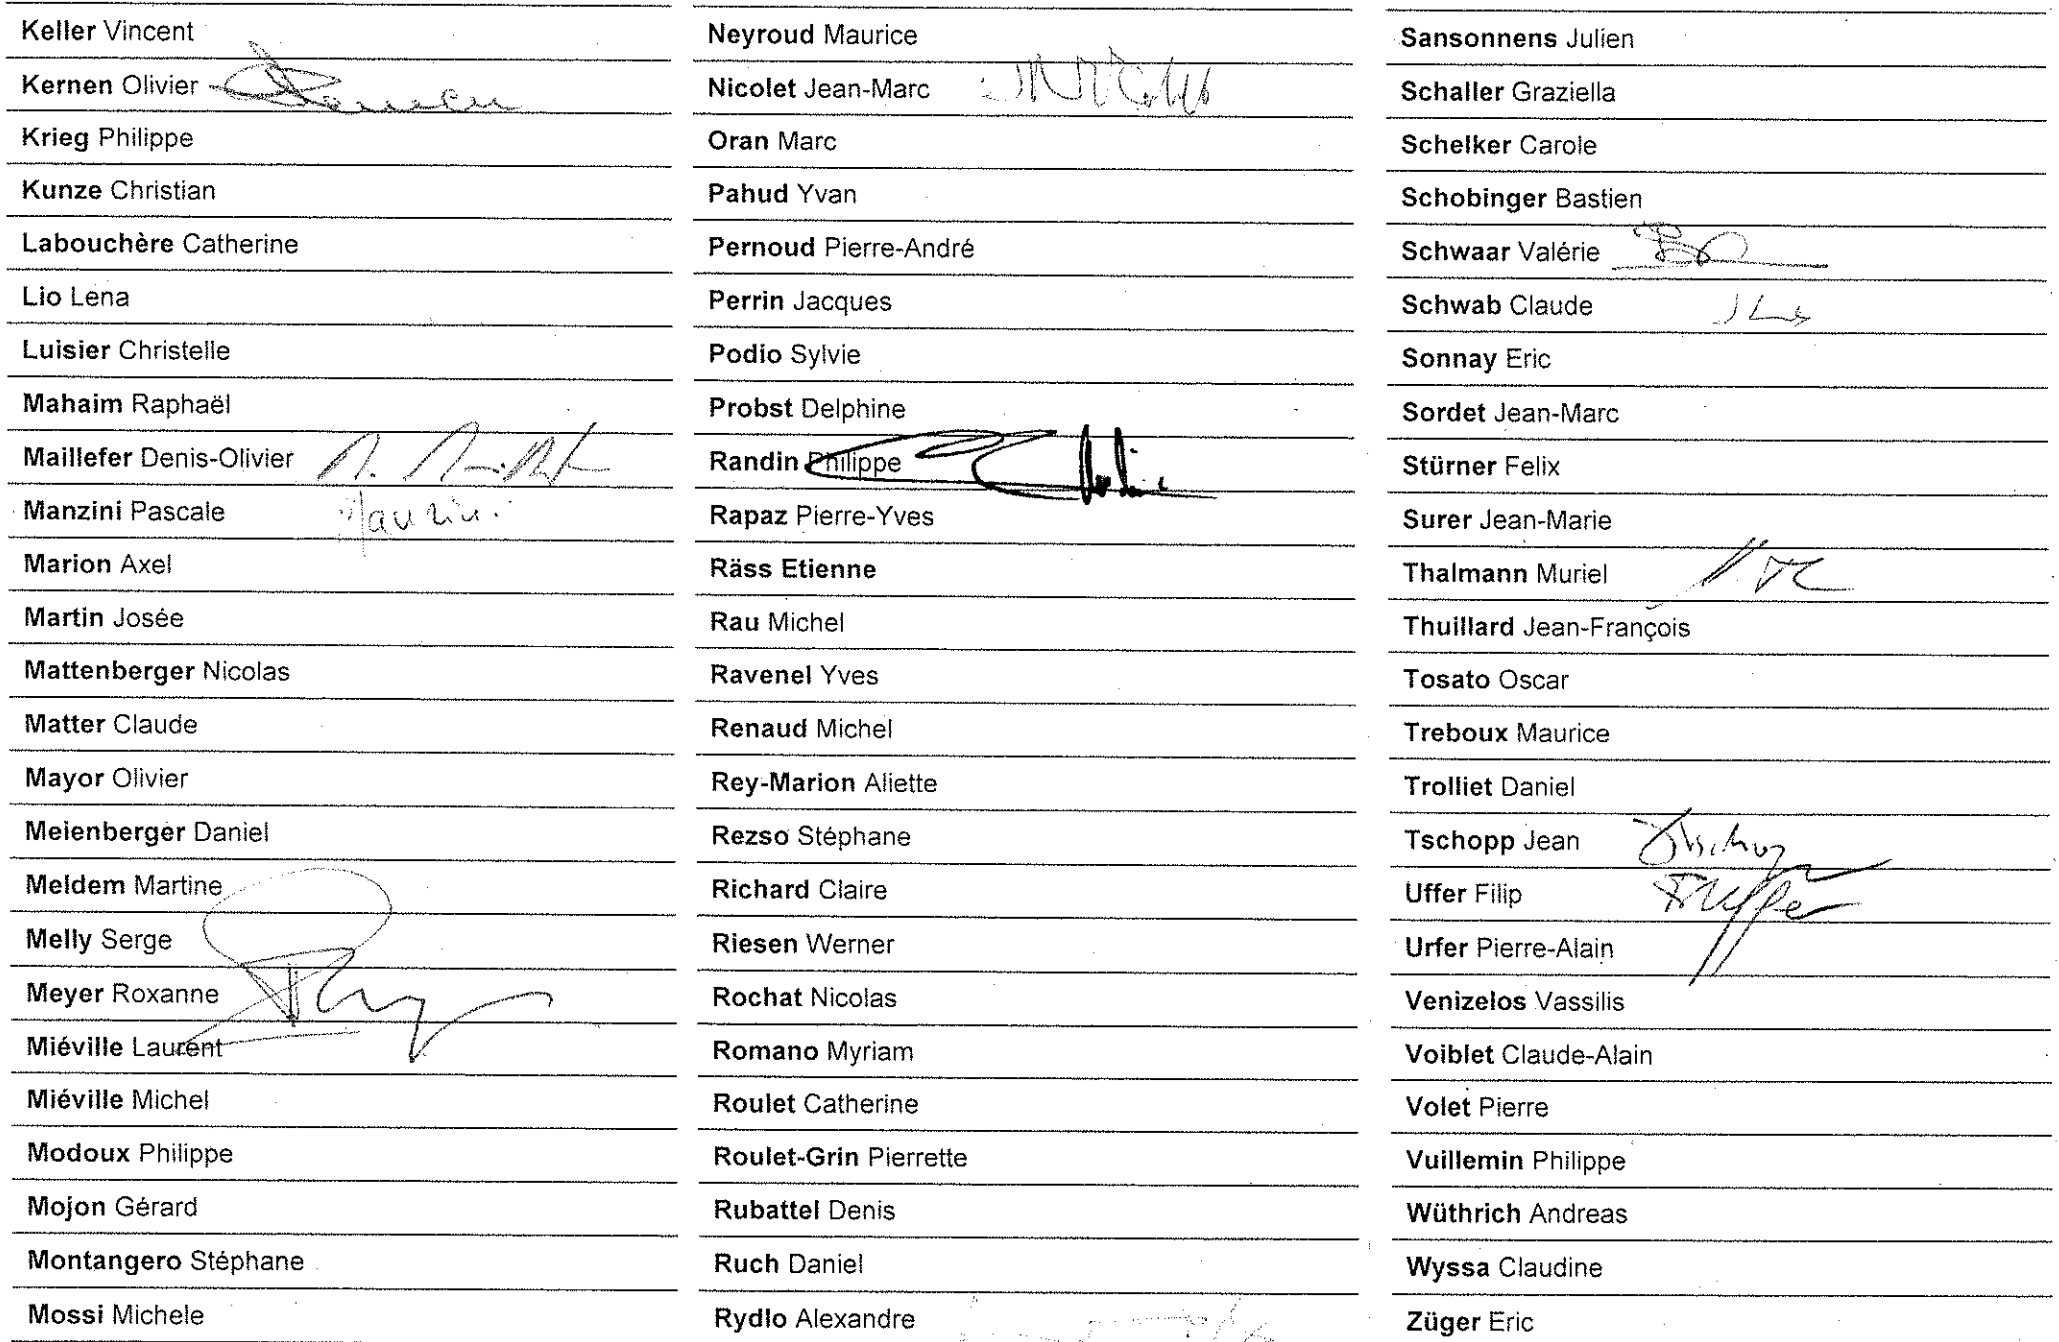 Keller Vincent
Kernen Olivier
Krieg Philippe
Kunze Christian
Labouchère Catherine
Lio Lena
Luisier Christelle
Mahaim Raphaël
Maillefer Denis-Olivier
Manzini Pascale Manzini
Marion Axel
Martin Josée
Mattenberger Nicolas
Matter Claude
Mayor Olivier
Meienberger Daniel
Meldem Martine
Melly Serge
Meyer Roxanne
Miéville Laurent
Miéville Michel
Modoux Philippe
Mojon Gérard
Montangero Stéphane
Mossi Michele
Neyroud Maurice
Nicolet Jean-Marc
Oran Marc
Pahud Yvan
Pernoud Pierre-André
Perrin Jacques
Podio Sylvie
Probst Delphine
Randin Philippe
Rapaz Pierre-Yves
Räss Etienne
Rau Michel
Ravenel Yves
Renaud Michel
Rey-Marion Aliette
Rezso Stéphane
Richard Claire
Riesen Werner
Rochat Nicolas
Romano Myriam
Roulet Catherine
Roulet-Grin Pierrette
Rubattel Denis
Ruch Daniel
Rydlo Alexandre
Sansonnens Julien
Schaller Graziella
Schelker Carole
Schobinger Bastien
Schwaar Valérie
Schwab Claude
Sonnay Eric
Sordet Jean-Marc
Stürner Felix
Surer Jean-Marie
Thalmann Muriel
Thuillard Jean-François
Tosato Oscar
Treboux Maurice
Trolliet Daniel
Tschopp Jean
Uffer Filip
Urfer Pierre-Alain
Venizelos Vassilis
Voiblet Claude-Alain
Volet Pierre
Vuillemin Philippe
Wüthrich Andreas
Wyssa Claudine
Züger Eric